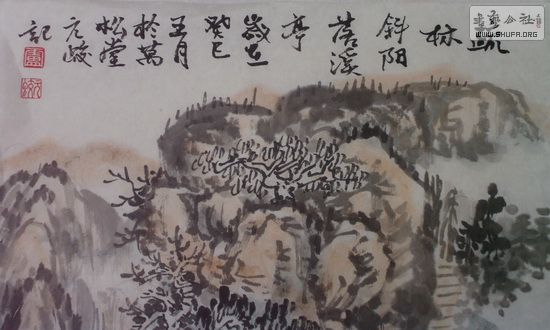 疏
林
斜阳
落溪
亭
歲在
癸巳
五月
於萬
松堂
元
記
公社
WWW.SHUFA.ORG